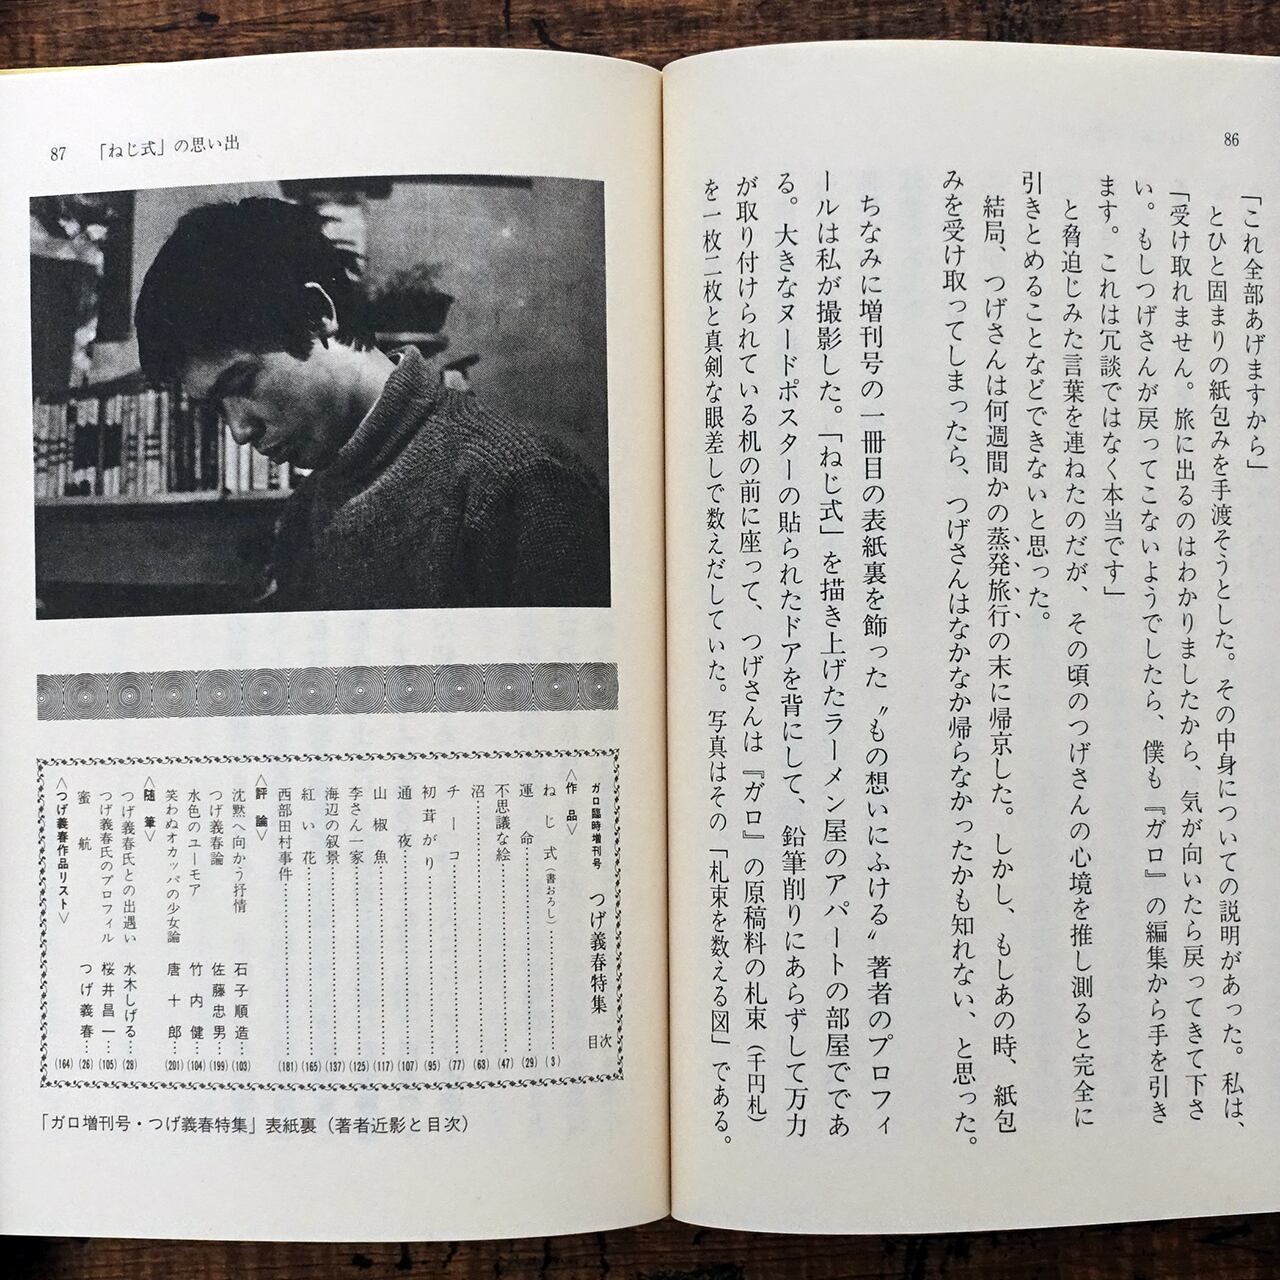 86
「これ全部あげますから」
とひと固まりの紙包みを手渡そうとした。その中身についての説明があった。私は、
「受け取れません。旅に出るのはわかりましたから、気が向いたら戻ってきて下さ
い。もしつげさんが戻ってこないようでしたら、僕も『ガロ』の編集から手を引き
ます。これは冗談ではなく本当です」
と脅迫じみた言葉を連ねたのだが、その頃のつげさんの心境を推し測ると完全に
引きとめることなどできないと思った。
結局、つげさんは何週間かの蒸発旅行の末に帰京した。しかし、もしあの時、紙包
みを受け取ってしまったら、つげさんはなかなか帰らなかったかも知れない、と思った。
ちなみに増刊号の一冊目の表紙裏を飾った〝もの想いにふける〟著者のプロフィ
ールは私が撮影した。「ねじ式」を描き上げたラーメン屋のアパートの部屋でであ
る。大きなヌードポスターの貼られたドアを背にして、鉛筆削りにあらずして万力
が取り付けられている机の前に座って、つげさんは『ガロ』の原稿料の札束（千円札）
を一枚二枚と真剣な眼差しで数えだしていた。写真はその「札束を数える図」である。
87 「ねじ式」の思い出
ガロ臨時増刊号 つげ義春特集 目次
〈作品〉
ねじ式（書おろし）…(3)
運命…(29)
不思議な絵…(47)
沼…(63)
チーコ…(77)
初茸がり…(95)
通夜…(107)
山椒魚…(117)
李さん一家…(125)
海辺の叙景…(137)
紅い花…(165)
西部田村事件…(181)
〈評論〉
沈黙へ向かう抒情 石子順造…(103)
つげ義春論 佐藤忠男…(199)
水色のユーモア 竹内健…(104)
笑わぬオカッパの少女論 唐十郎…(201)
〈随筆〉
つげ義春氏との出遇い 水木しげる…(28)
つげ義春氏のプロフィル 桜井昌一…(105)
蜜航 つげ義春…(26)
〈つげ義春作品リスト〉 (164)
「ガロ増刊号・つげ義春特集」表紙裏（著者近影と目次）